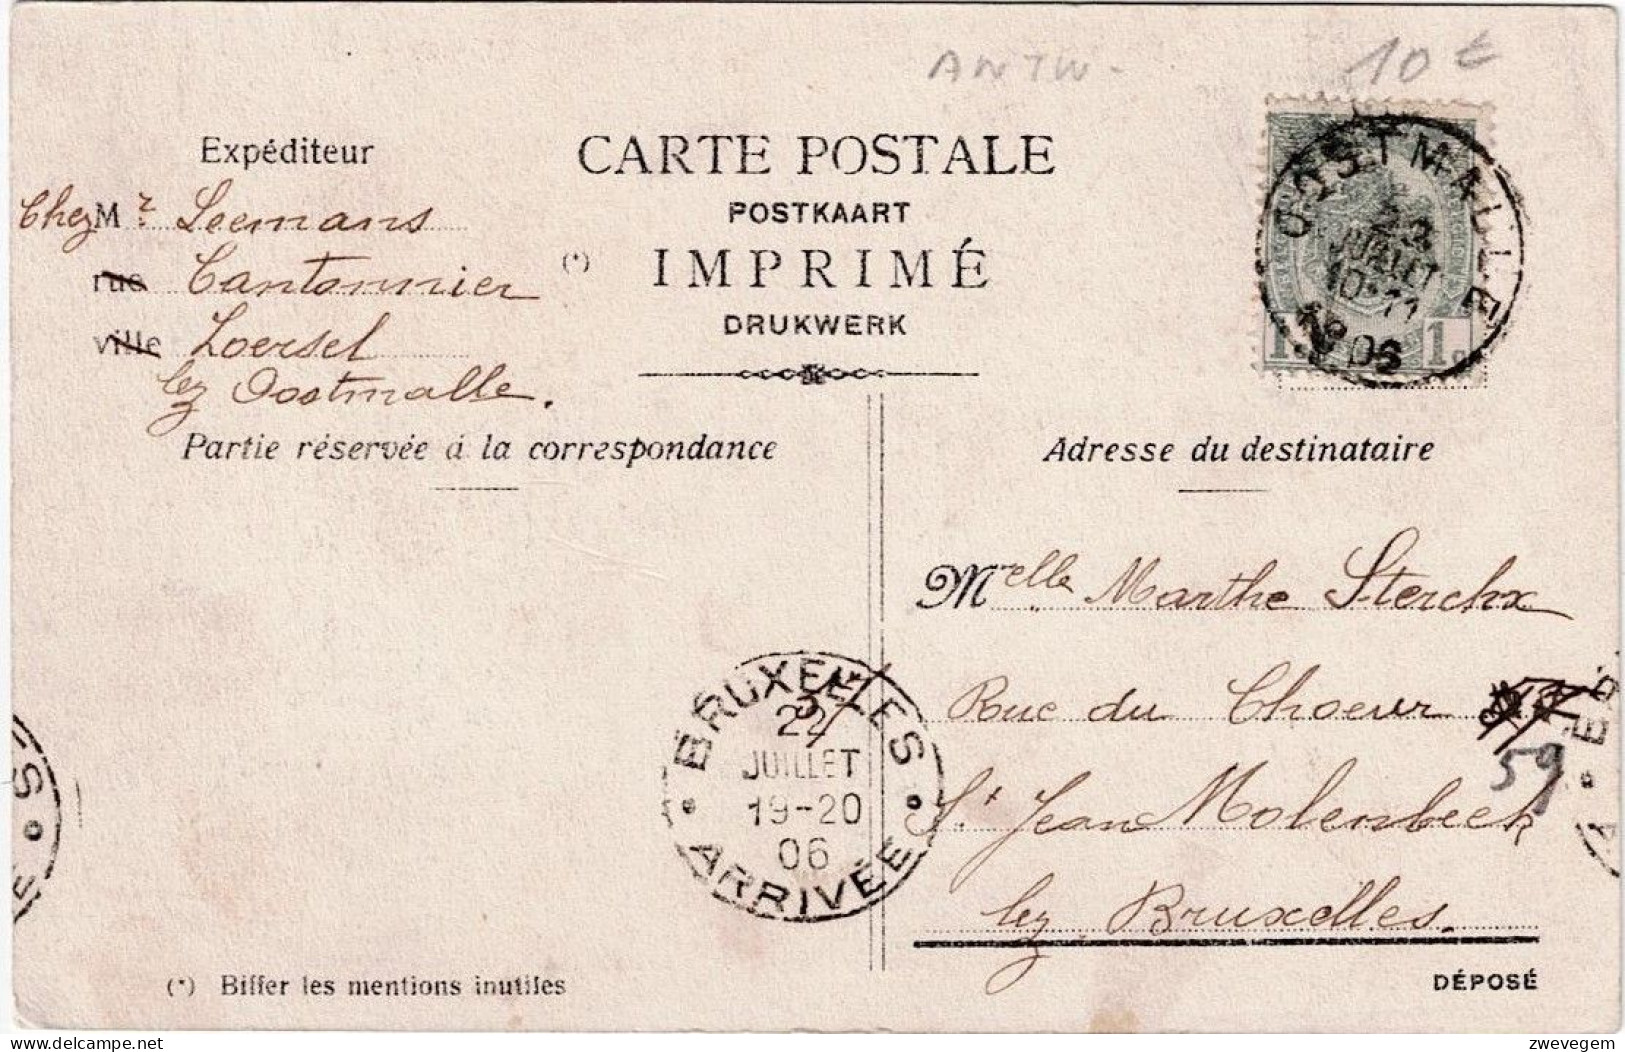 ANTW-
10 €
Expéditeur
Chez Mr Leemans
rue Cantonnier
ville Loersel
lez Oostmalle.
CARTE POSTALE
POSTKAART
(*) IMPRIMÉ
DRUKWERK
OOSTMALLE
JUILLET
10-11
1906
1c 1c
Partie réservée à la correspondance
Adresse du destinataire
Melle Marthe Sterckx
Rue du Choeur
59
St Jean Molenbeek
lez Bruxelles.
BRUXELLES
22
JUILLET
19-20
06
ARRIVÉE
(*) Biffer les mentions inutiles
DÉPOSÉ
delcampe.net
zwevegem